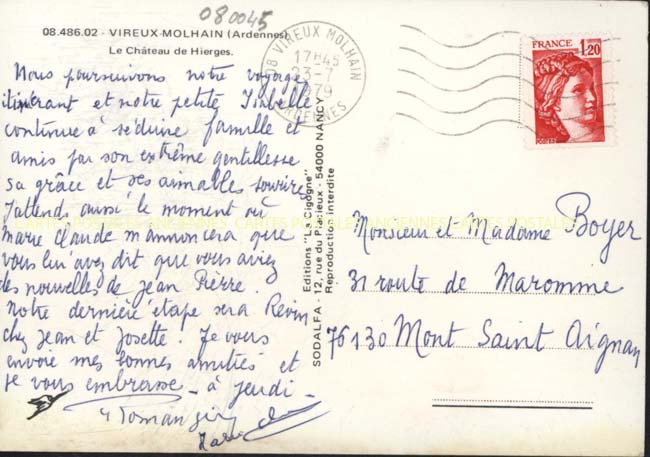 080045
08.486.02 - VIREUX-MOLHAIN (Ardennes)
Le Château de Hierges.
Nous poursuivons notre voyage
itinérant et notre petite Isabelle
continue à séduire famille et
amis par son extrême gentillesse
sa grâce et ses aimables sourires
J'attends aussi le moment où
Marie Claude m'annoncera que
vous lui avez dit que vous aviez
des nouvelles de Jean Pierre.
Notre dernière étape sera Revin
chez Jean et Josette. Je vous
envoie mes bonnes amitiés et
je vous embrasse - à jeudi -
08 VIREUX MOLHAIN
17H45
23-7
1979
ARDENNES
FRANCE 1,20
Editions "La Cigogne"
SODALFA - 12, rue du Placieux - 54000 NANCY
Reproduction interdite
CARTES POSTALES ANCIENNES CARTES POSTALES ANCIENNES CARTES POSTALES
Monsieur et Madame Boyer
31 route de Maromme
76130 Mont Saint Aignan